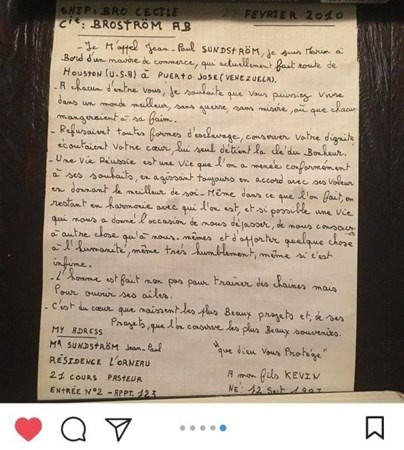 SHIP: BRO CECILE 22 FEVRIER 2010
Cie: BROSTRÖM AB
- Je M'appel Jean-Paul SUNDSTRÖM, je suis Marin à
Bord d'un navire de commerce, qui actuellement fait route de
HOUSTON (U.S.A) à PUERTO JOSE (VENEZUELA).
- A chacun d'entre vous, je souhaite que vous puissiez vivre
dans un monde meilleur, sans guerre, sans misère, où que chacun
mangeraient à sa faim.
- Refusaient toutes formes d'esclavage, conserver votre dignité
écoutaient votre cœur, lui seul détient la clé du Bonheur.
- Une Vie Réussie est une Vie que l'on a menée conformément
à ses souhaits, en agissant toujours en accord avec ses Valeurs
en donnant le meilleur de soi-Même dans ce que l'on fait, en
restant en harmonie avec qui l'on est, et si possible une Vie
qui nous a donné l'occasion de nous dépasser, de nous consacrer
à autre chose qu'à nous-mêmes et d'apporter quelque chose
à l'humanité, même très humblement, même si c'est
infime.
- L'homme est fait non pas pour traîner des chaînes mais
Pour ouvrir ses ailes.
- C'est du cœur que naissent les plus Beaux projets et, de ses
Projets, que l'on conserve les plus Beaux souvenirs.
MY ADRESS
Mr SUNDSTRÖM Jean-Paul "que dieu Vous Protège"
RÉSIDENCE L'ORNEAU
21 COURS PASTEUR A mon fils KEVIN
ENTRÉE N°2 - APPT. 123 NÉ: 12 Sept